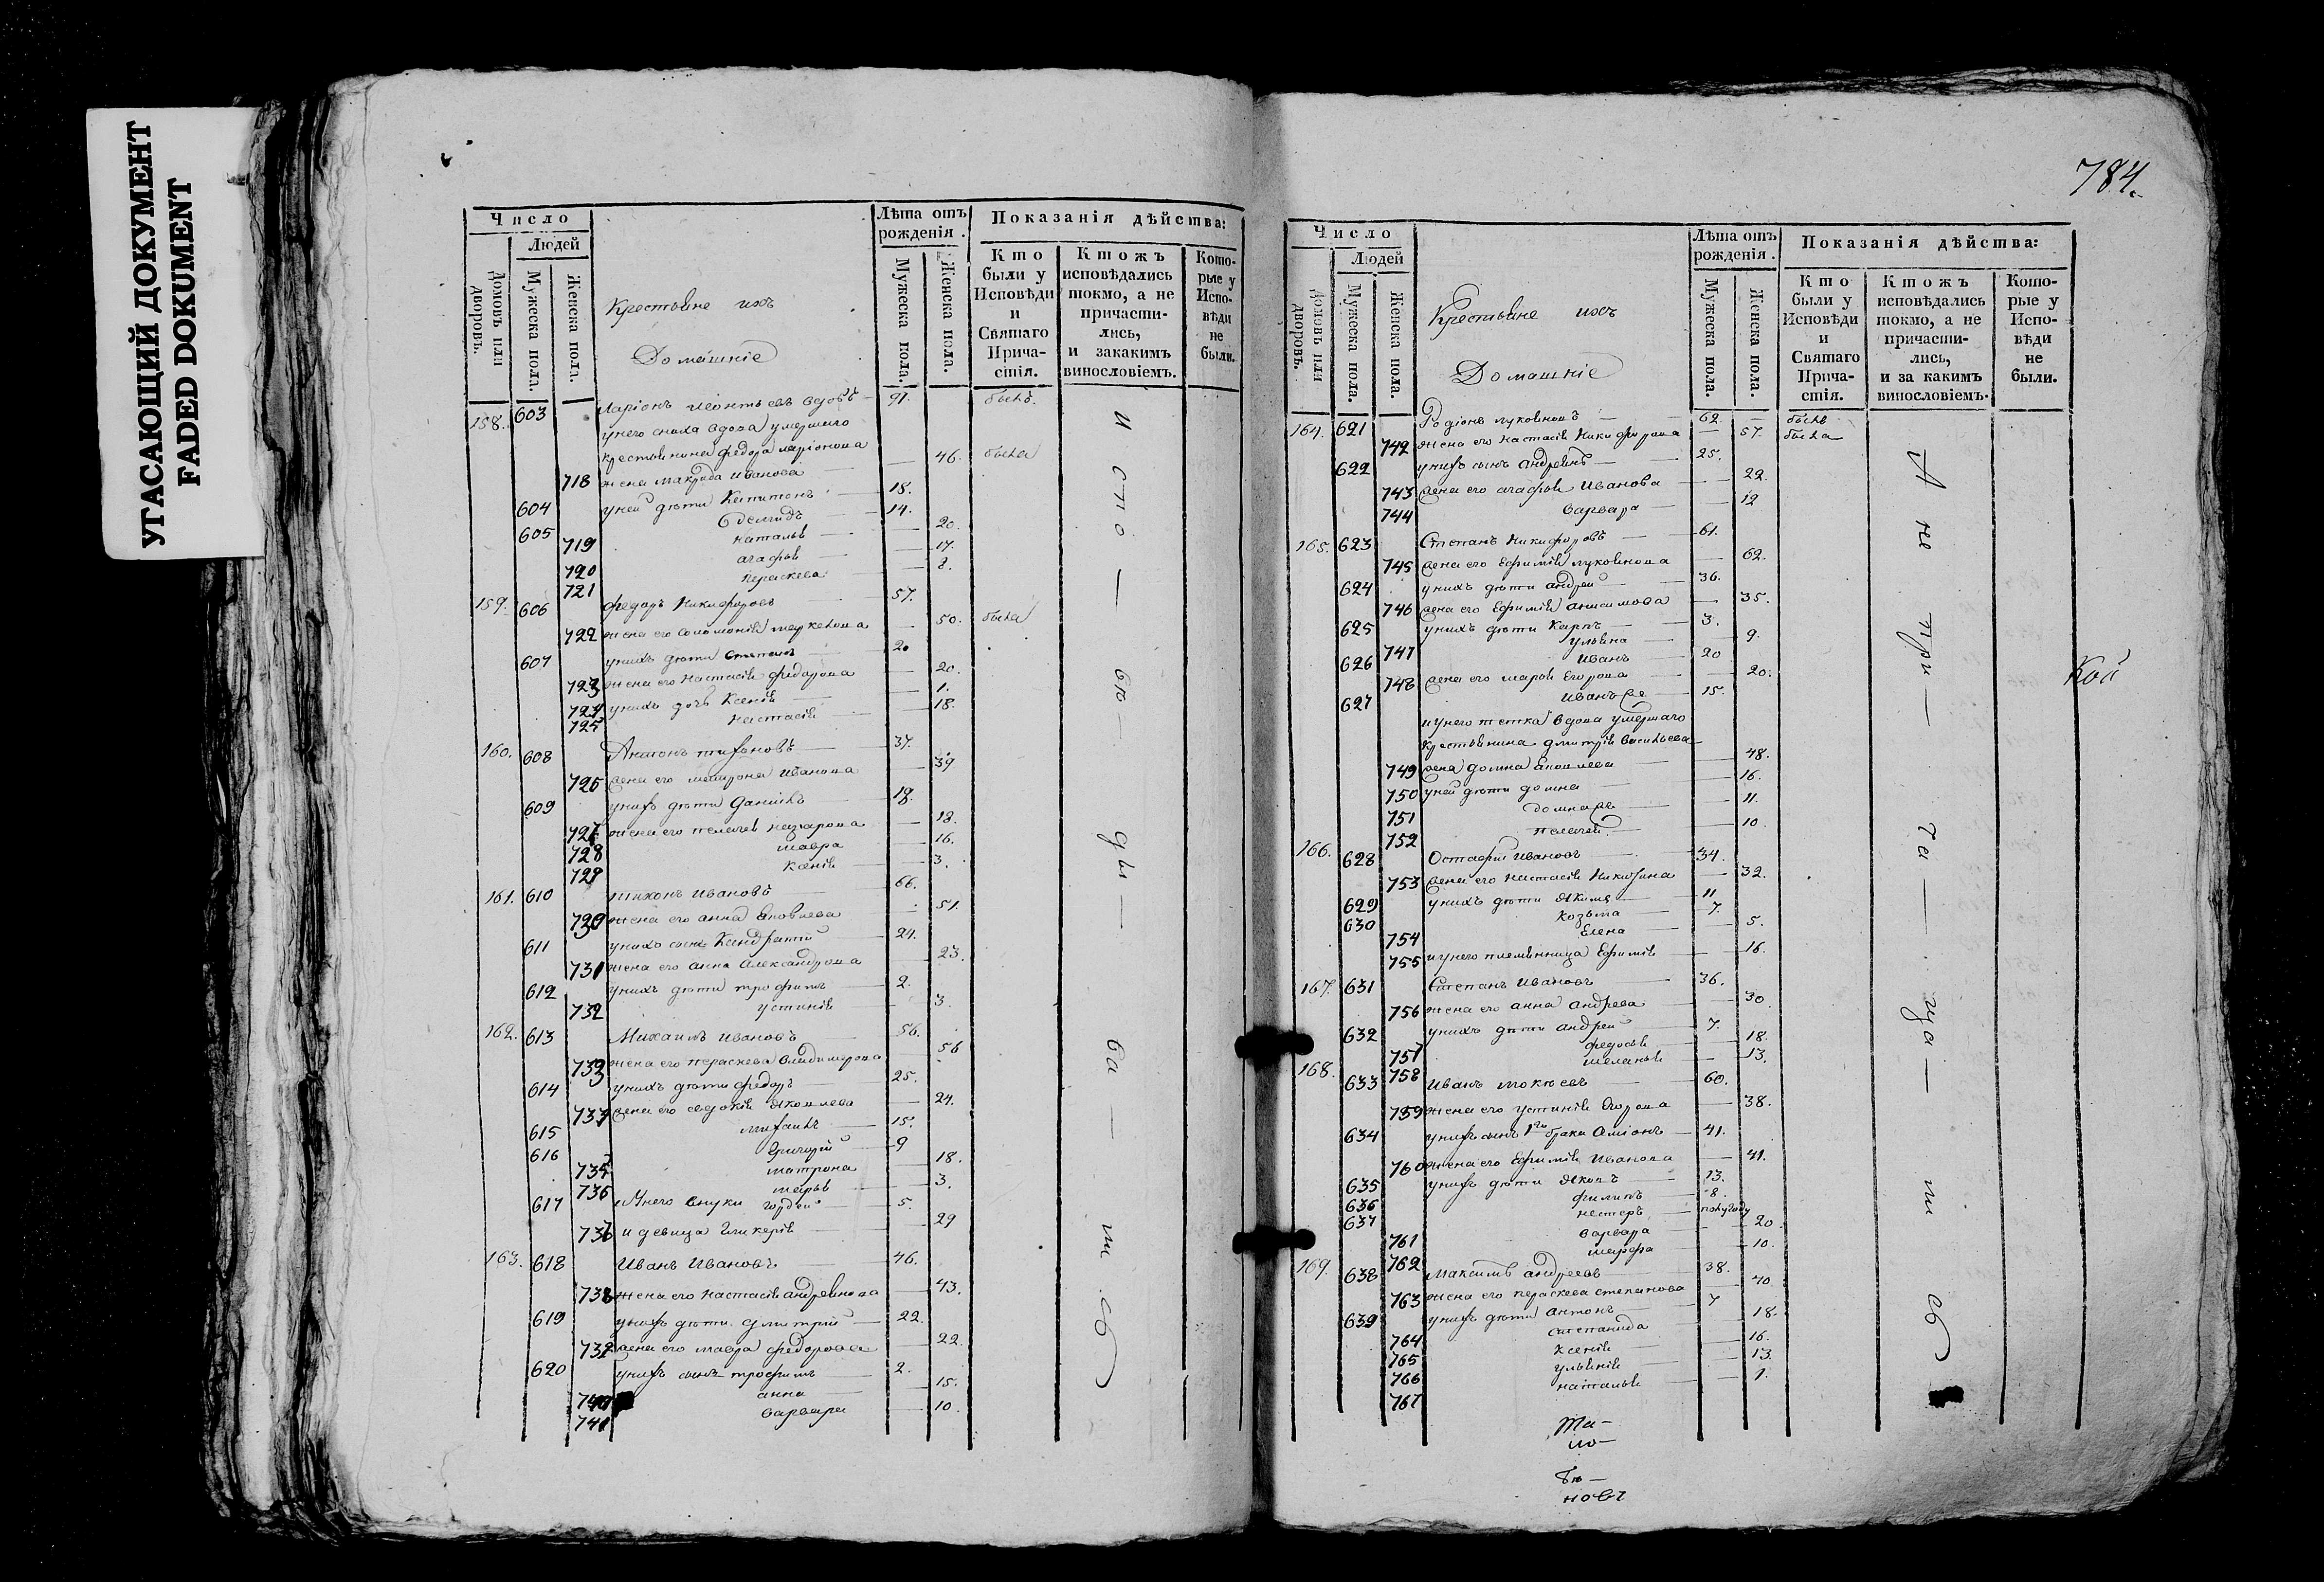 УГАСАЮЩИЙ ДОКУМЕНТ
FADED DOKUMENT
Число
Людей
Домовъ или дворовъ.
Мужеска пола.
Женска пола.
Крестьяне ихъ
Домашніе
Лѣта отъ рожденія.
Мужеска пола.
Женска пола.
Показанія дѣйства:
Кто были у Исповѣди и Святаго Прича-стія.
Ктожъ исповѣдались токмо, а не причасти-лись, и закакимъ винословіемъ.
Кото-рые у Испо-вѣди не были.
158. 603 Ларіонъ Леонтьевъ вдовъ 91. былъ
у него сноха вдова умершаго
крестьянина федора ларіонова
718 жена Макрида Иванова 46. была
604 у ней дѣти Капитонъ 18.
605 14.
719 наталья 20.
720 агафья 17.
721 Параскева 8.
159. 606 федоръ Никифоровъ 57.
722 жена его Соломонія 50. была
607 у нихъ дѣти Степанъ 20
723 жена его Настасія федорова 20.
724 у нихъ дочь Ксенія 1.
725 Настасія 18.
160. 608 Антонъ 37.
726 жена его матрона Иванова 39
609 у нихъ дѣти Данила 18.
727 жена его пелагея назарова 18.
728 мавра 16.
729 Ксенія 3.
161. 610 тихонъ Ивановъ 66.
730 жена его анна Яковлева 51.
611 у нихъ сынъ Кандратій 24.
731 жена его анна Александрова 23.
612 у нихъ дѣти трофимъ 2.
732 устинія 3.
162. 613 Михаилъ Ивановъ 56.
733 жена его параскева владимерова 56
614 у нихъ дѣти федоръ 25.
733 жена его евдокія Яковлева 24.
615 15.
616 Григорій 9
735 матрона 18.
736 марья 3.
617 У него внуки гордей 5.
736 и девица Гликерія 29
163. 618 Иванъ Ивановъ 46.
738 жена его Настасія андреянова 43.
619 у нихъ дѣти дмитрій 22.
739 жена его мавра федорова 22
620 у нихъ сынъ трофимъ 2.
740 анна 15.
741 варвара 10.
784.
Число
Людей
Домовъ или дворовъ.
Мужеска пола.
Женска пола.
Крестьяне ихъ
Домашніе
Лѣта отъ рожденія.
Мужеска пола.
Женска пола.
Показанія дѣйства:
Кто были у Исповѣди и Святаго Прича-стія.
Ктожъ исповѣдались токмо, а не причасти-лись, и за какимъ винословіемъ.
Кото-рые у Испо-вѣди не были.
164. 621 Родіонъ 62. былъ
742 жена его Настасія Никифорова 57. была
622 у нихъ сынъ Андреянъ 25.
743 жена его агафья Иванова 22.
744 варвара 12
165. 623 Степанъ Никифоровъ 61.
745 жена его Ефимія 62.
624 у нихъ дѣти андрей 36.
746 жена его Ефимія анисимова 35.
625 у нихъ дѣти Карпъ 3.
747 ульяна 9.
626 Иванъ 20
748 жена его марья Егорова 20.
627 Иванъ же 15.
и у него тетка вдова умершаго
крестьянина дмитрія Васильева
749 жена домна Яковлева 48.
750 у ней дѣти домна 16.
751 домна же 11.
752 пелагея 10.
166. 628 Остафій Ивановъ 34.
753 жена его Настасія Никитина 32.
629 у нихъ дѣти Якимъ 11
630 козьма 7.
754 Елена 5.
755 и у него племянница Ефимія 16.
167. 631 Степанъ Ивановъ 36.
756 жена его анна андрева 30.
632 у нихъ дѣти андрей 7.
757 федосья 18.
758 меланья 13.
168. 633 Иванъ Мокѣевъ 60.
759 жена его устинія Егорова 38.
634 у нихъ сынъ 1го брака 41.
760 жена его Ефимія Иванова 41.
635 у нихъ дѣти Яковъ 13.
636 филипъ 8.
637 нестеръ полугоду
761 варвара 20.
762 марфа 10.
169. 638 Максимъ андреевъ 38.
763 жена его параскева степанова 40.
639 у нихъ дѣти антонъ 7
764 степанида 18.
765 ксенія 16.
766 ульянія 13.
767 наталья 1.
Кой